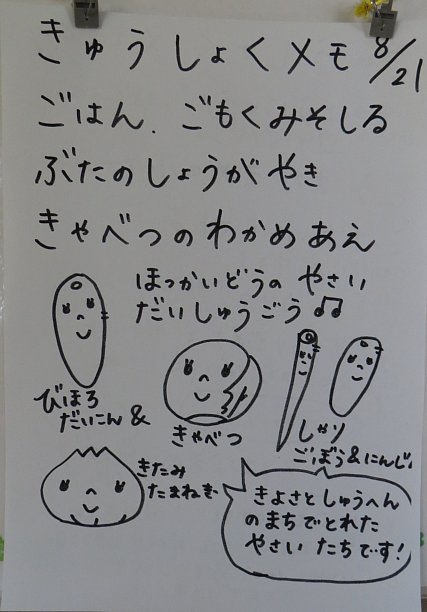 きゅうしょくメモ 8/21
ごはん、ごもくみそしる
ぶたのしょうがやき
きゃべつのわかめあえ
ほっかいどうの やさい
だいしゅうごう♫
びほろ
だいこん &
きゃべつ
しゃり
ごぼう&にんじん
きたみ
たまねぎ
きよさとしゅうへん
のまちでとれた
やさい たちです!